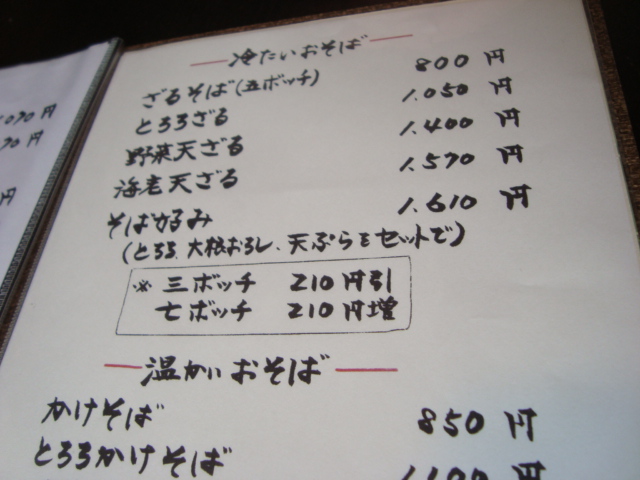 冷たいおそば
ざるそば(五ボッチ) 800円
とろろざる 1.050円
野菜天ざる 1.400円
海老天ざる 1.570円
そば好み 1.610円
(とろろ、大根おろし、天ぷらをセットで)
※ 三ボッチ 210円引
七ボッチ 210円増
温かいおそば
かけそば 850円
とろろかけそば 1.100円
070円
70円
円